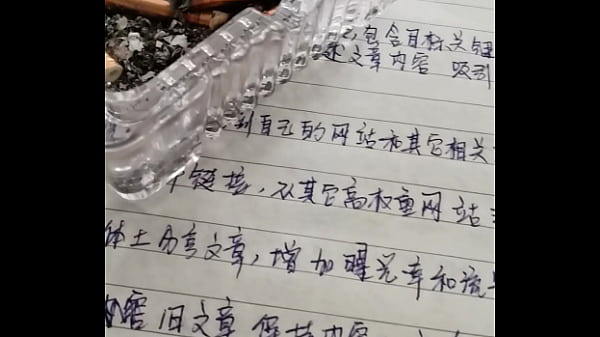 包含目标关键
述文章内容 吸引
到自己的网站和其它相关
链接，从其它高权重网站
体上分享文章，增加曝光率和流
内容 旧文章 保持内容